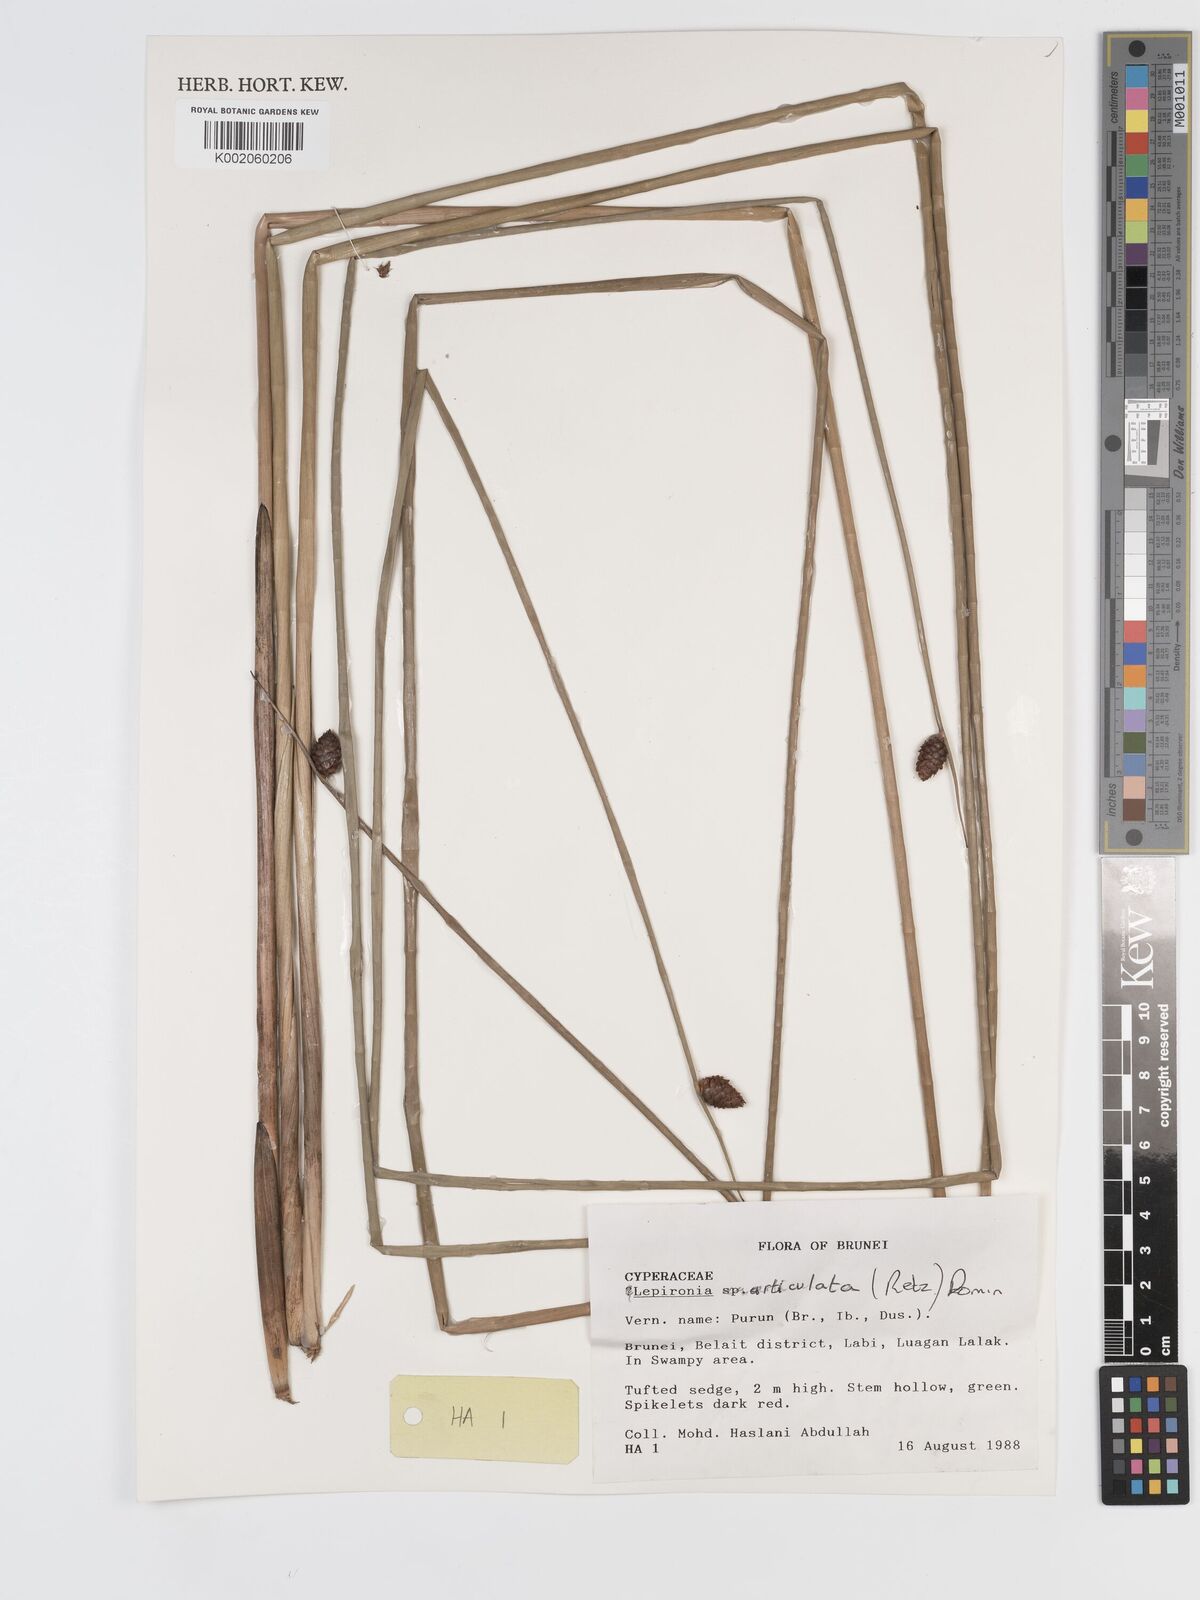 HERB. HORT. KEW.
ROYAL BOTANIC GARDENS KEW
K002060206
FLORA OF BRUNEI
CYPERACEAE
?Lepironia sp. articulata (Retz.) Domin
Vern. name: Purun (Br., Ib., Dus.).
Brunei, Belait district, Labi, Luagan Lalak.
In Swampy area.
Tufted sedge, 2 m high. Stem hollow, green.
Spikelets dark red.
Coll. Mohd. Haslani Abdullah
HA 1
16 August 1988
HA 1
centimeters
M001011
Don Williams
inches
Density
Kew
Royal Botanic Gardens
copyright reserved
0 1 2 3 4 5 6 7 8 9 10
cm